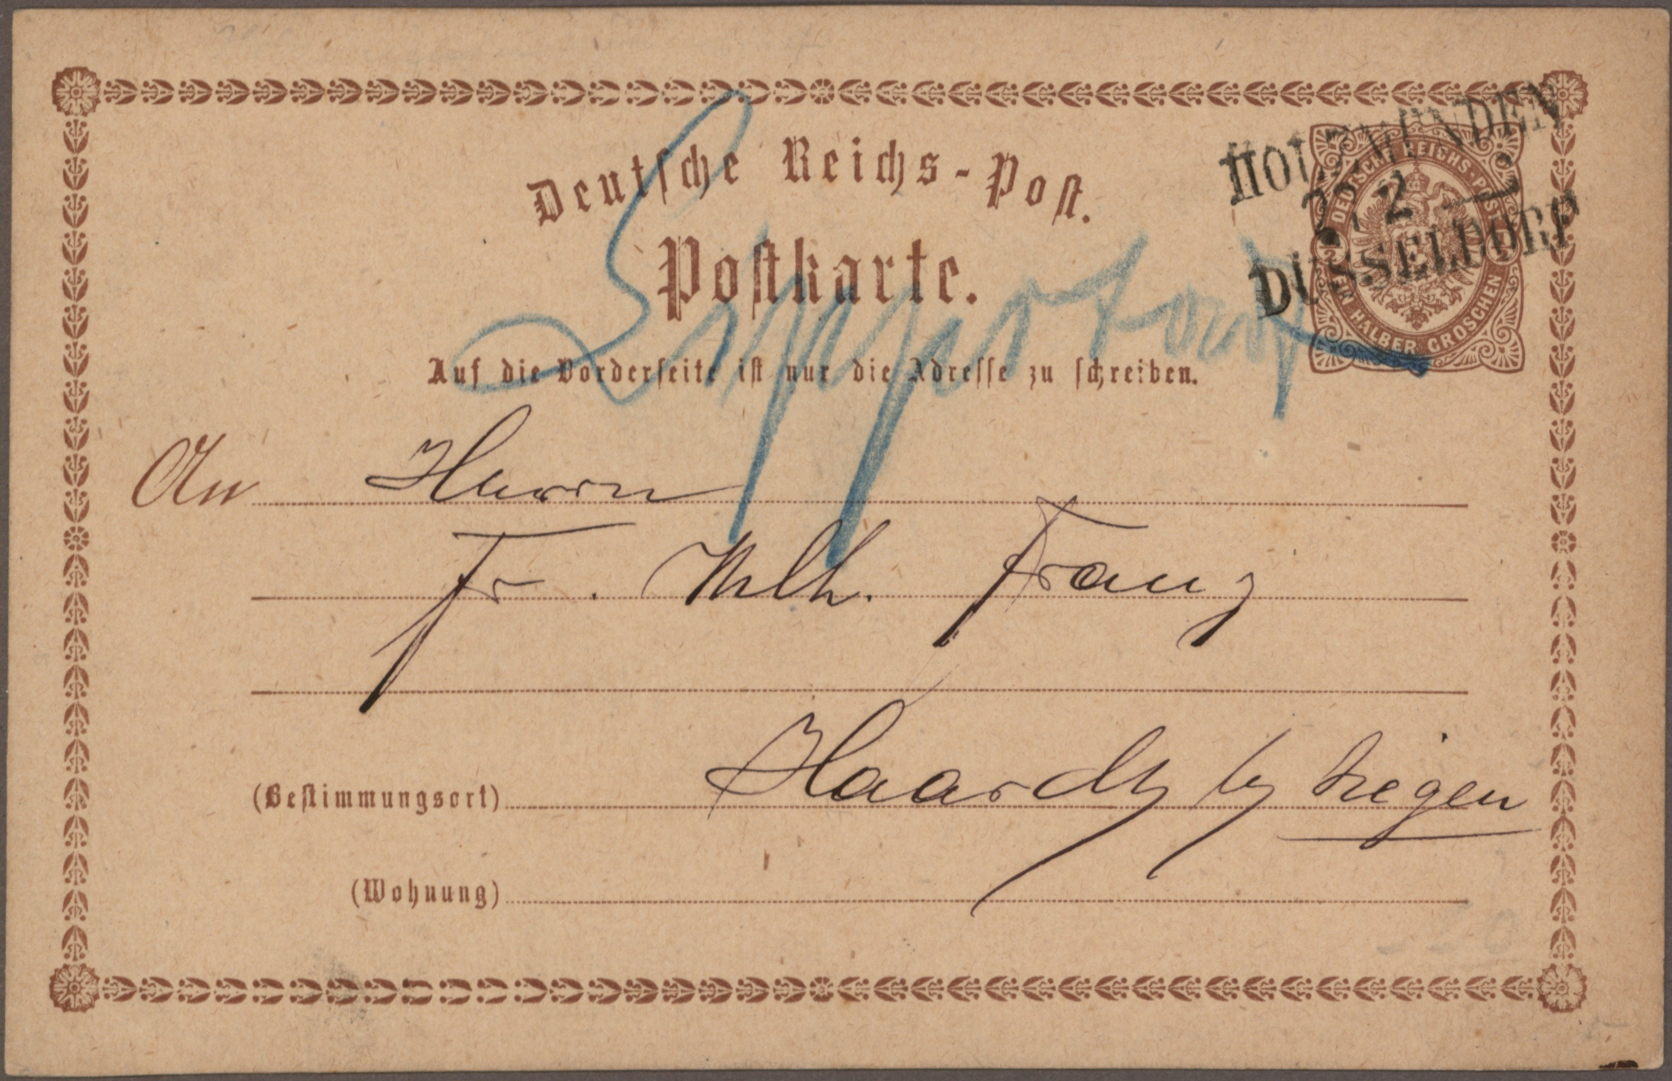 Deutsche Reichs-Post.
Postkarte.
HOLZMINDEN
27 2
DÜSSELDORF
DEUTSCHE REICHS-POST
EIN HALBER GROSCHEN
Lippstadt
Auf die Vorderseite ist nur die Adresse zu schreiben.
An Herrn
Fr. Wilh. Franz
(Bestimmungsort) Haardt by Siegen
(Wohnung)